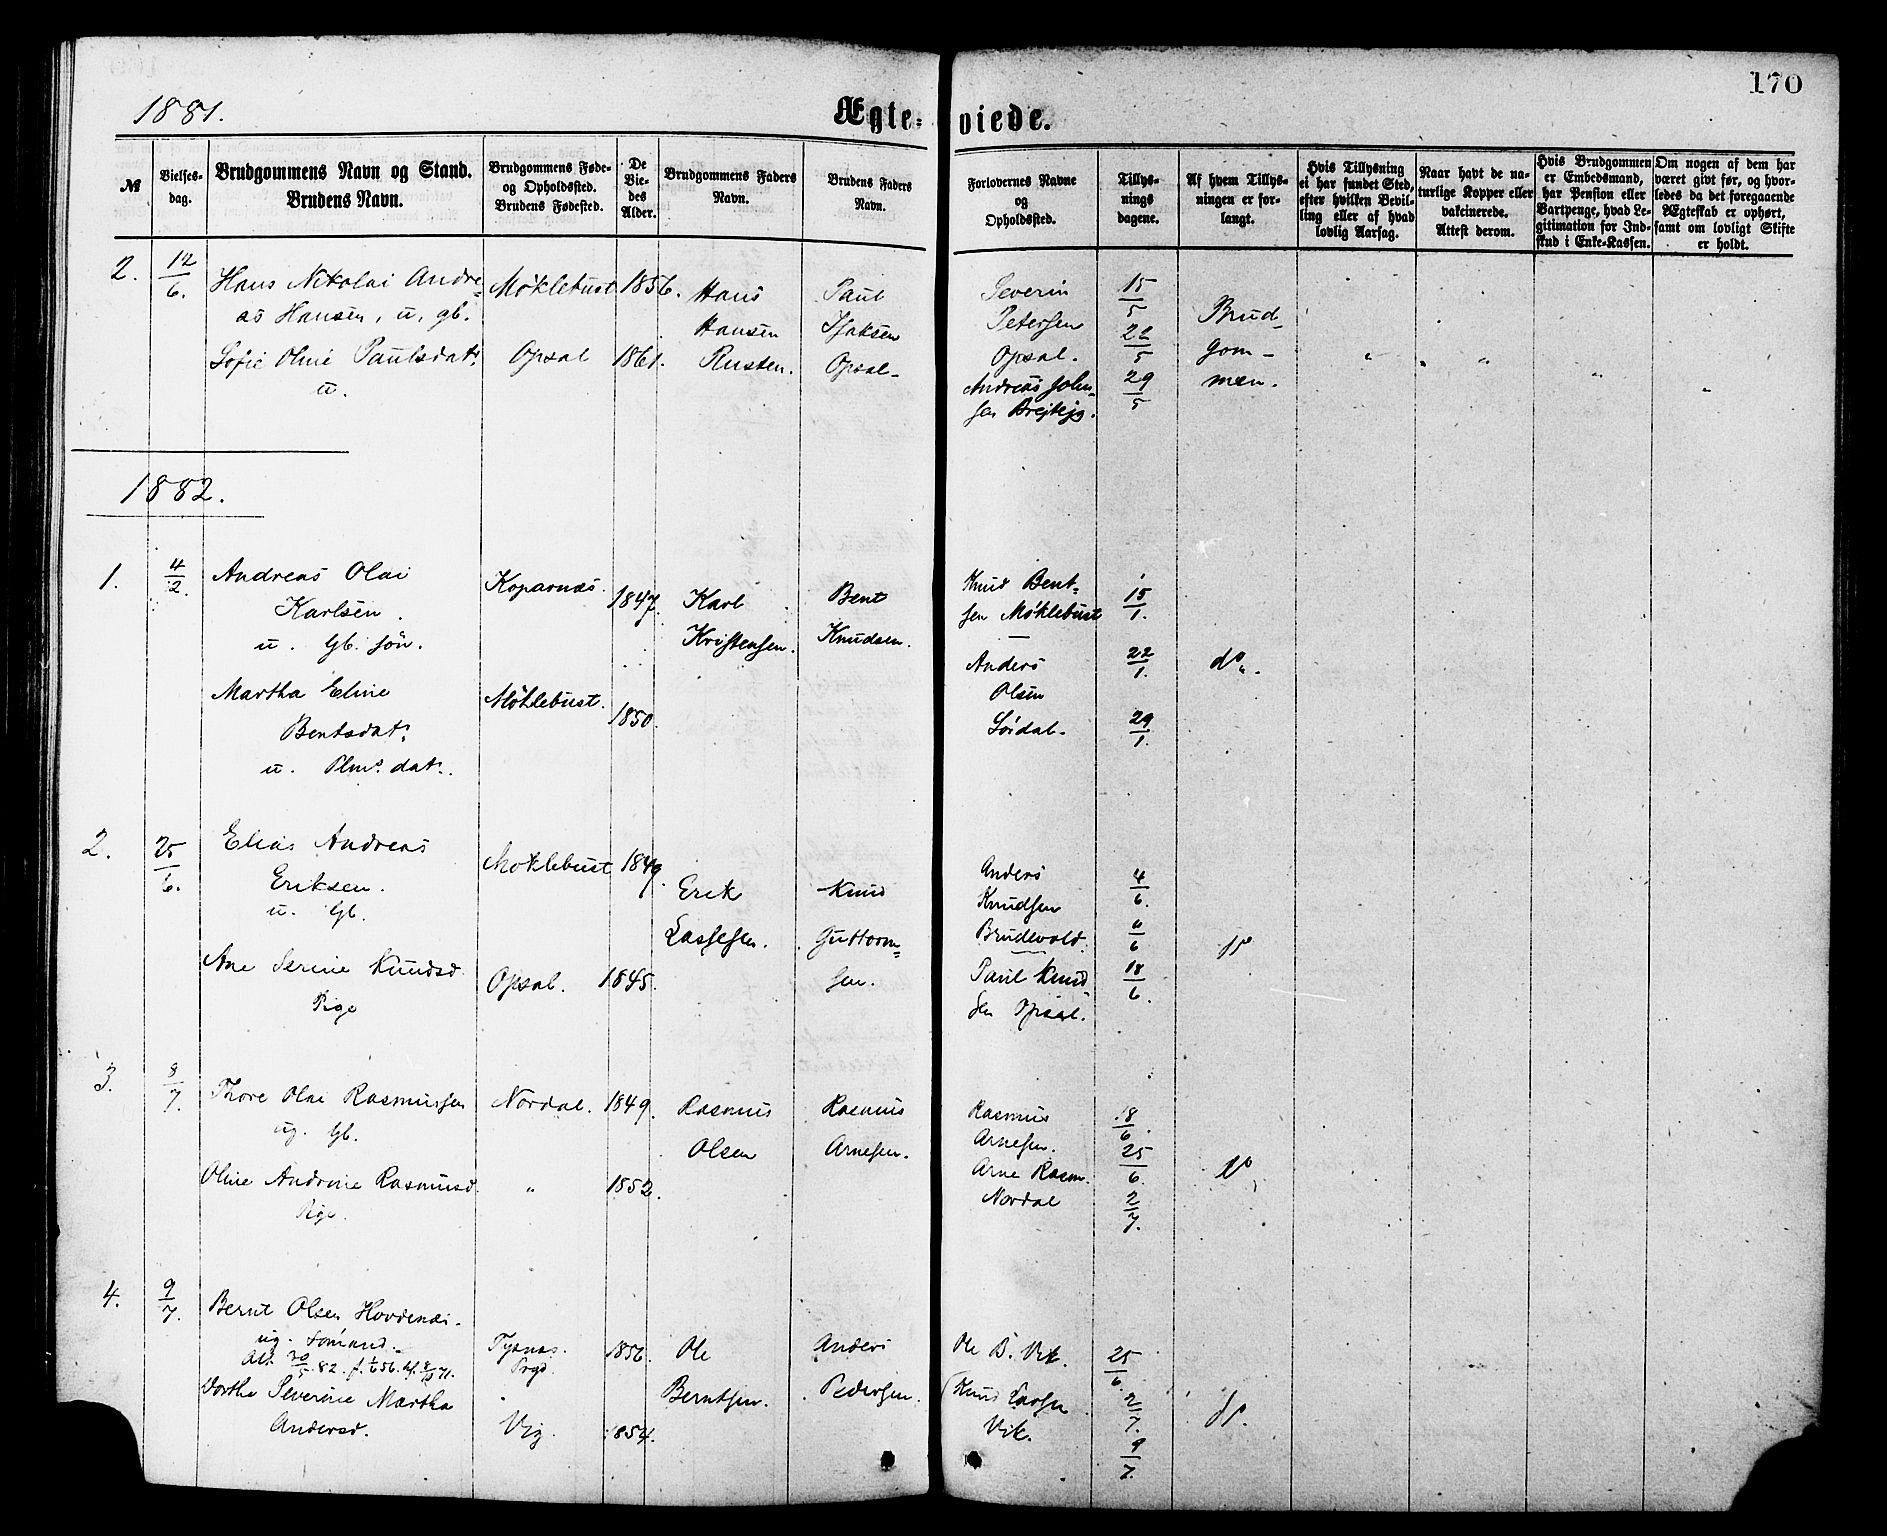 170
1881.
Ægte- viede.
№
Vielses-
dag.
Brudgommens Navn og Stand.
Brudens Navn.
Brudgommens Føde-
og Opholdssted.
Brudens Fødested.
De
Vie-
des
Alder.
Brudgommens Faders
Navn.
Brudens Faders
Navn.
Forlovernes Navne
og
Opholdssted.
Tillys-
nings
dagene.
Af hvem Tillys-
ningen er for-
langt.
Hvis Tillysning
ei har fundet Sted,
efter hvilken Bevil-
ling eller af hvad
lovlig Aarsag.
Naar havt de na-
turlige Kopper eller
vakcinerede.
Attest derom.
Hvis Brudgommen
er Embedsmand,
har Pension eller
Vartpenge, hvad Le-
gitimation for Ind-
skud i Enke-Kassen.
Om nogen af dem har
været givt før, og hvor-
ledes da det foregaaende
Ægteskab er ophørt,
samt om lovligt Skifte
er holdt.
2.
12/6.
Hans Nikolai Andre=
as Hansen, u. gb.
Sofie Oline Paulsdatr
u.
Møklebust
Opsal
1856.
1861.
Hans
Hansen
Rusten.
Paul
Isaksen
Opsal-
Severin
Petersen
Opsal.
Andreas John=
sen
15/5
22/5
29/5
Brud-
gom-
men.
1882.
1.
4/2.
Andreas Olai
Karlsen.
u. gb. søn.
Martha Eline
Bentsdatr
u. Plms datr.
Koparnæs.
Møklebust.
1847.
1850.
Karl
Kristensen.
Bent
Knudsen.
Knud Bent=
sen Møklebust
Anders
Olsen
Sørdal.
15/1.
22/1.
29/1.
do.
2.
25/6.
Elias Andreas
Eriksen.
u. gb.
Ane Serine Knudsd.
Pige
Møklebust
Opsal.
1849.
1845.
Erik
Lassesen.
Knud
Guttorm=
sen.
Anders
Knudsen
Brudevold.
Paul Knud
sen Opsal.
4/6.
18/6.
do
3.
8/7.
Thore Olai Rasmussen
ug. gb.
Oline Andrine Rasmusd.
Pige.
Nordal.
"
1849.
1852.
Rasmus
Olsen
Rasmus
Arnesen.
Rasmus
Arnesen.
Arne Rasm.
Nordal
18/6.
25/6.
2/7.
do
4.
9/7.
Bernt Olsen Hovdenæs.
ug. Sømand.
Dorthe Severine Martha
Andersd.
Tysnæs.
Prgd.
Vig.
1856.
1854.
Ole
Berntsen.
Anders
Pedersen.
Ole B. Vik.
Knud Larsen
Vik.
25/6
2/7.
9/7.
do.